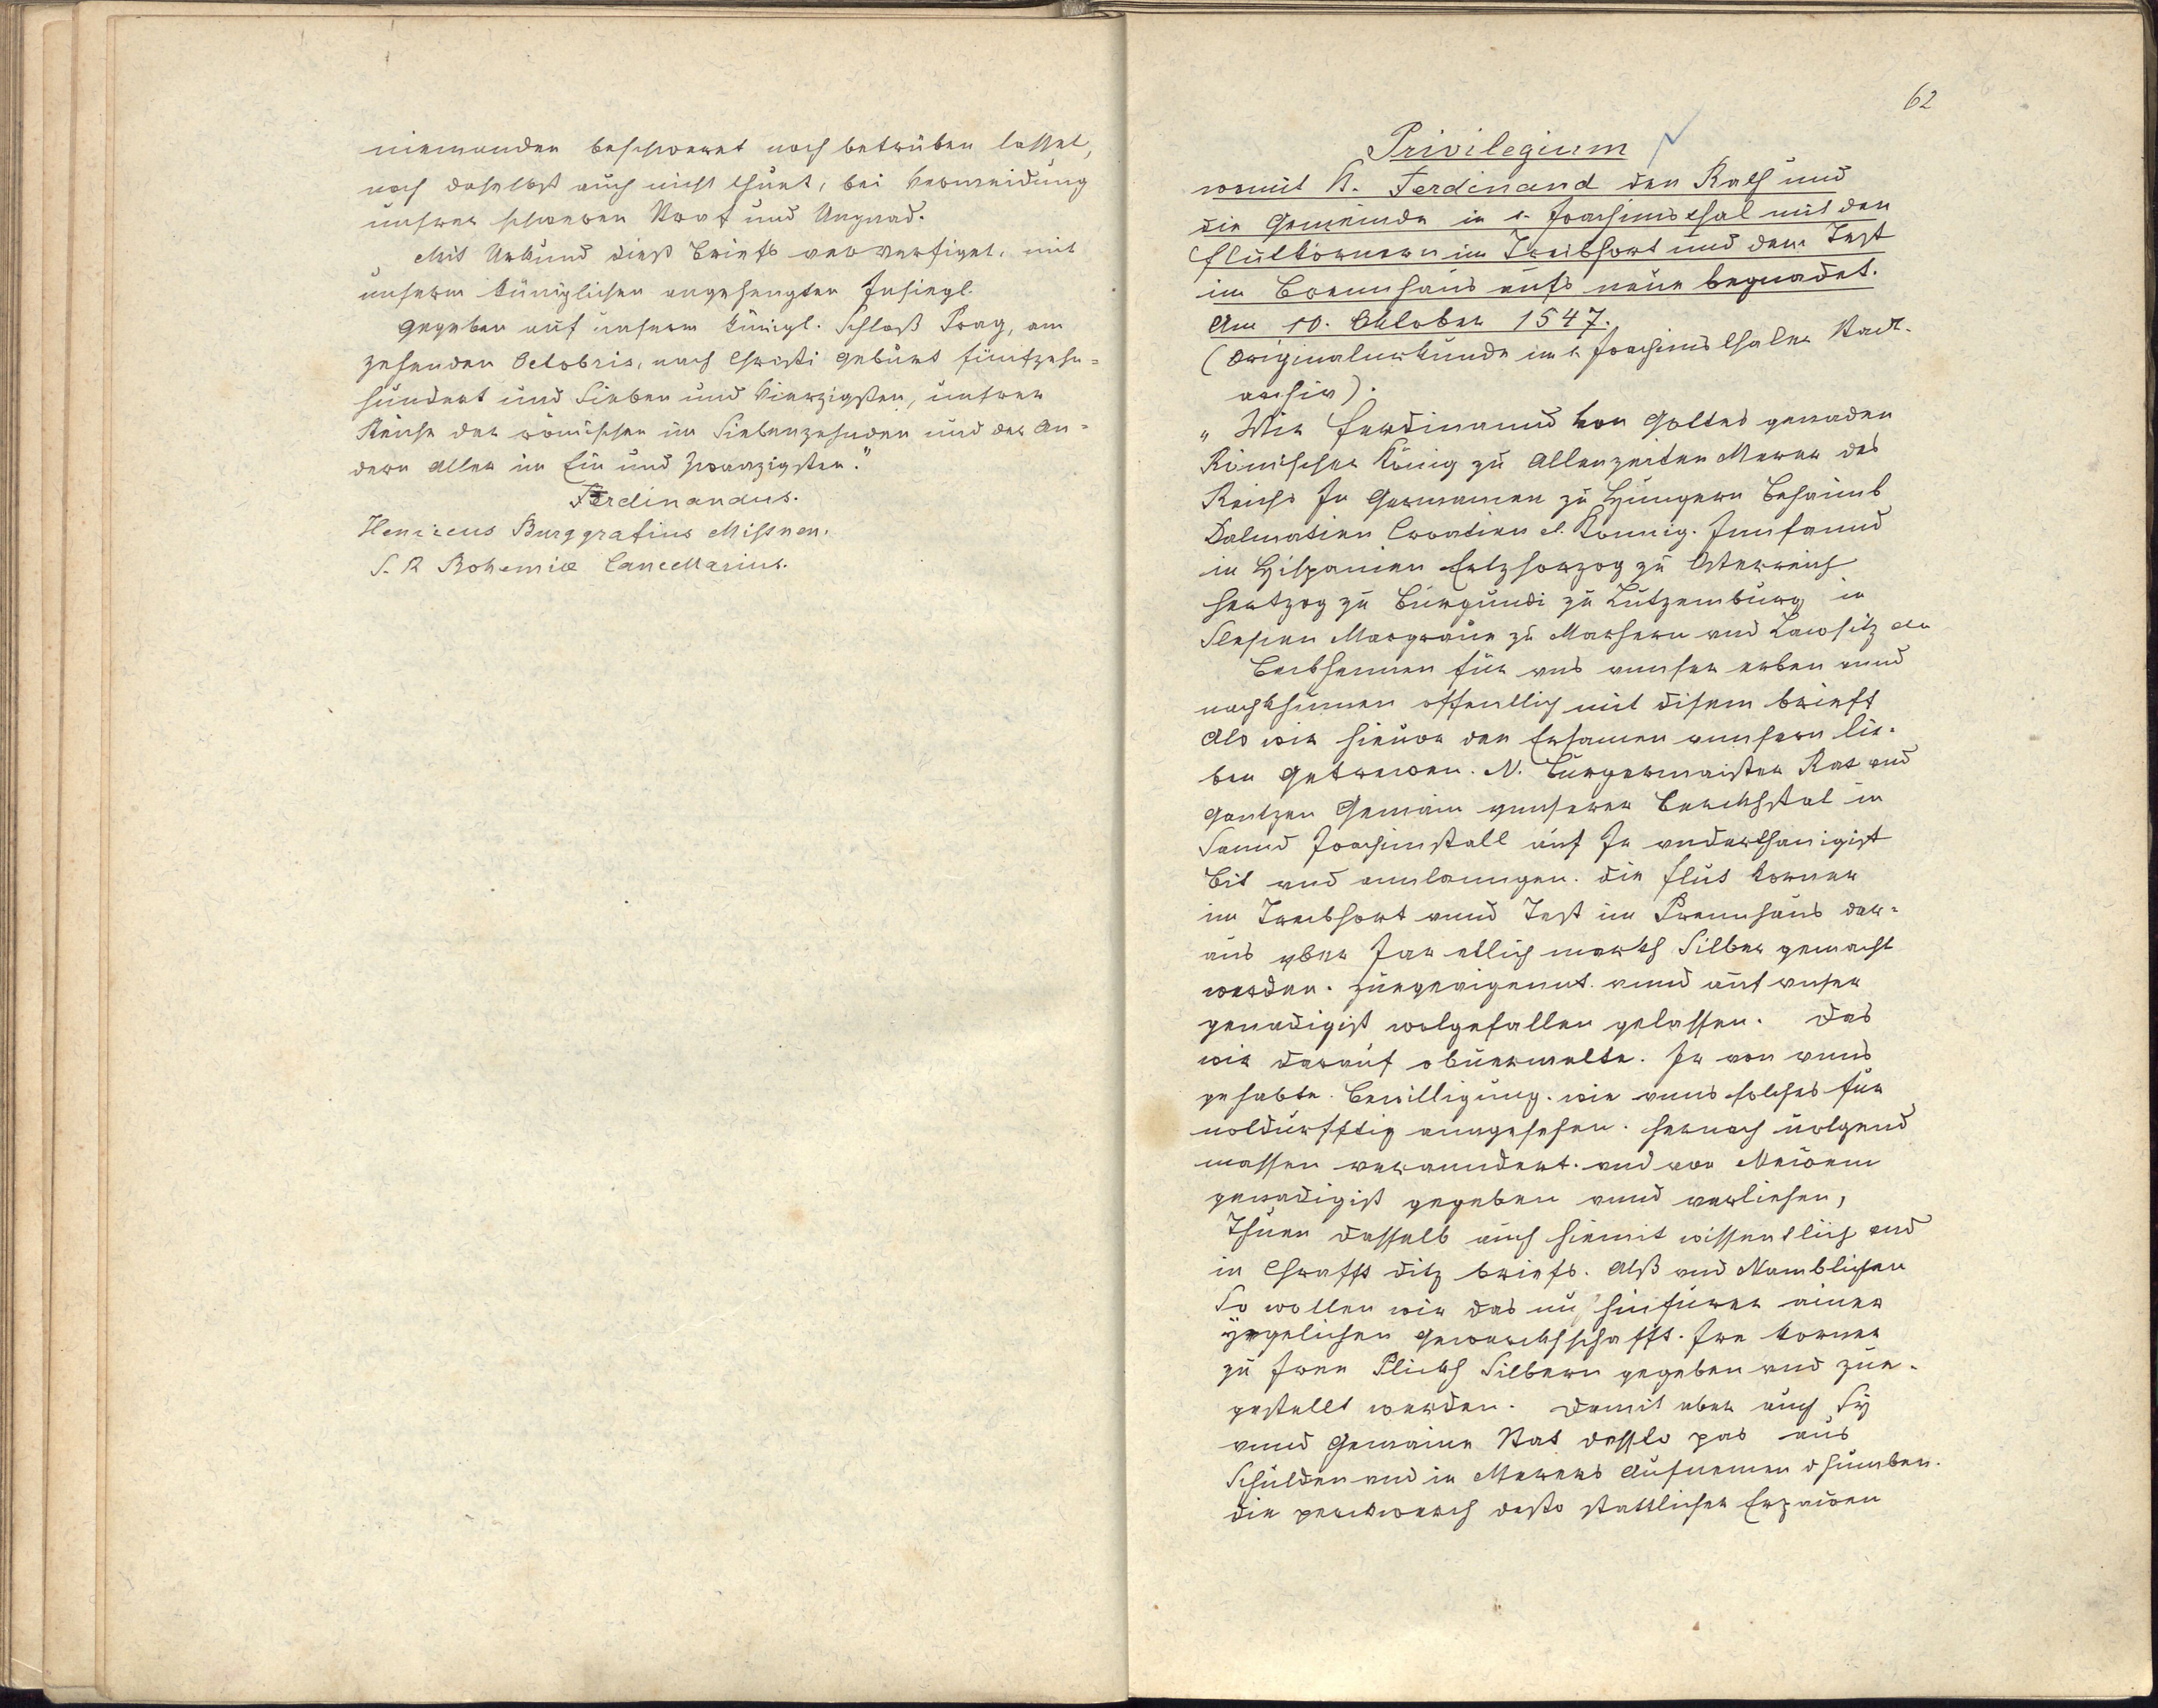 niemanden beschweret noch betrüben lasset,
noch daselbst auch nicht thuet, bei Vermeidung
unsrer schweren Straf und Ungnad.
Mit Urkund dieß Briefs verfertiget, mit
unserm königlichen angehengten Insiegl.
Gegeben auf unserm königl. Schloß Prag, am
zehenden Octobris, nach Christi Geburt fünfzehn=
hundert und Sieben und Vierzigsten, unsrer
Reiche des römischen im Siebenzehnden und der An=
dern Aller im Ein und Zwanzigsten."
Ferdinandus.
Henricus Burggrafius Missnen.
S. R Bohemiæ Cancellarius.
62
Privilegium
womit K. Ferdinand den Rath und
die Gemeinde in s. Joachimsthal mit den
Flutkörnern im Treibhert und dem Test
im Brennhaus aufs neue begnadet.
Am 10. Oktober 1547.
(Originalurkunde im s. Joachimsthaler Stadt-
archiv).
„Wir Ferdinannd von Gottes genaden
Römischer König zu Allenzeiten Merer des
Reichs In Germanien zu Hungern Behaimb
Dalmatien Croatien et. Konnig. Innfannd
in Hispanien Ertzhertzog zu Osterreich
Hertzog zu Burgundi zu Lutzemburg in
Slesien Marggraue zu Marhern vnd Lawsitz etc
Bekhennen für vns vnnser erben vnnd
nachkhumen offentlich mit disem brieff
Als wir hieuor den Ersamen vnnsern lie-
ben Getrewen. N. Burgermaister Rat vnd
Gantzen Gemain vnnserer Berckhstat in
Sannd Joachimstall auf Ir vnderthanigist
Bit vnd annlanngen. die flus korner
im Treibhert vnnd Test im Prennhaus dar-
aus yber Jar etlich markh Silber gemacht
werden. Zuegeaigennt. vnnd auf vnser
genadigist wolgefallen gelassen. Das
wir darauf obuermelte. Ir von vnns
gehabte. Bewilligung. wie vnns solches für
noldurfftig anngesehen. hernach uolgend
massen verenndert. vnd von Newem
genadigist gegeben vnnd verliehen,
Thuen dasselb auch hiemit wissentlich vnd
in Chrafft ditz briefs. Alß vnd Namblichen
So wollen wir das nu hinfurer ainer
yegelichen Gewerckhschafft. Ire korner
zu Iren Plickh Silbern gegeben vnd zue-
gestellt werden. Damit aber auch Sy
vnnd Gemaine Stat dessto pas aus
Schulden vnd in Merers Aufnemen khumben.
die perckwerch desto stattlicher Erpawen